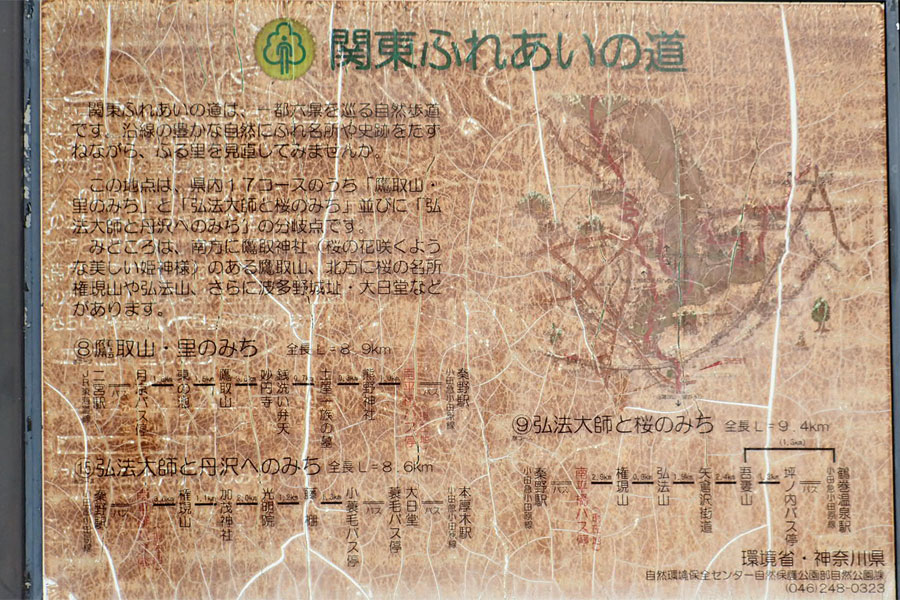 関東ふれあいの道
関東ふれあいの道は、一都六県を巡る自然歩道
です。沿線の豊かな自然にふれ名所や史跡をたず
ねながら、ふる里を見直してみませんか。
この地点は、県内17コースのうち「鷹取山・
里のみち」と「弘法大師と桜のみち」並びに「弘
法大師と丹沢へのみち」の分岐点です。
みどころは、南方に鷹取神社(桜の花咲くよう
な美しい姫神様)のある鷹取山、北方に桜の名所
権現山や弘法山、さらに波多野城址・大日堂など
があります。
⑧鷹取山・里のみち 全長L=8.9km
二宮駅
バス
鷹取山
妙円寺
銭洗い弁天
土屋一族の墓
熊野神社
バス
秦野駅
小田急小田原線
⑨弘法大師と桜のみち 全長L=9.4km
秦野駅
小田急小田原線
バス
南平橋バス停
権現山
弘法山
矢倉沢街道
吾妻山
坪ノ内バス停
バス
鶴巻温泉駅
小田急小田原線
⑮弘法大師と丹沢へのみち 全長L=8.6km
秦野駅
小田急小田原線
バス
権現山
加茂神社
光明院
小蓑毛バス停
バス
蓑毛バス停
大日堂
バス
本厚木駅
小田急小田原線
環境省・神奈川県
自然環境保全センター自然保護公園部自然公園課
(046)248-0323